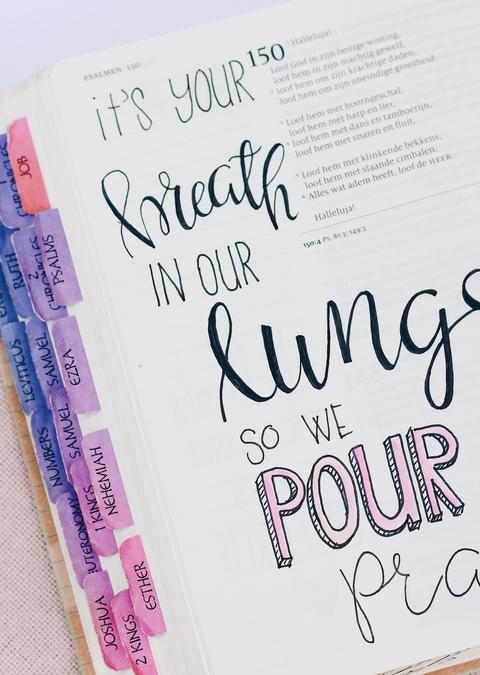 PSALMEN 150
150
Halleluja!
Loof God in zijn heilige woning,
loof hem in zijn machtig gewelf,
loof hem om zijn krachtige daden,
loof hem om zijn oneindige grootheid.
loof hem met hoorngeschal,
loof hem met harp en lier,
loof hem met dans en tamboerijn,
loof hem met snaren en fluit.
Loof hem met klinkende bekkens,
loof hem met slaande cimbalen.
Alles wat adem heeft, loof de HEER.
Halleluja!
150:4 Ps. 81:3; 149:3
IT'S YOUR
breath
IN OUR
lungs
SO WE
POUR
pra
JOB
RUTH
2
CHRONICLES
PSALMS
LEVITICUS
SAMUEL
EZRA
NUMBERS
SAMUEL
1 KINGS
NEHEMIAH
UTERONOMY
JOSHUA
2 KINGS
ESTHER